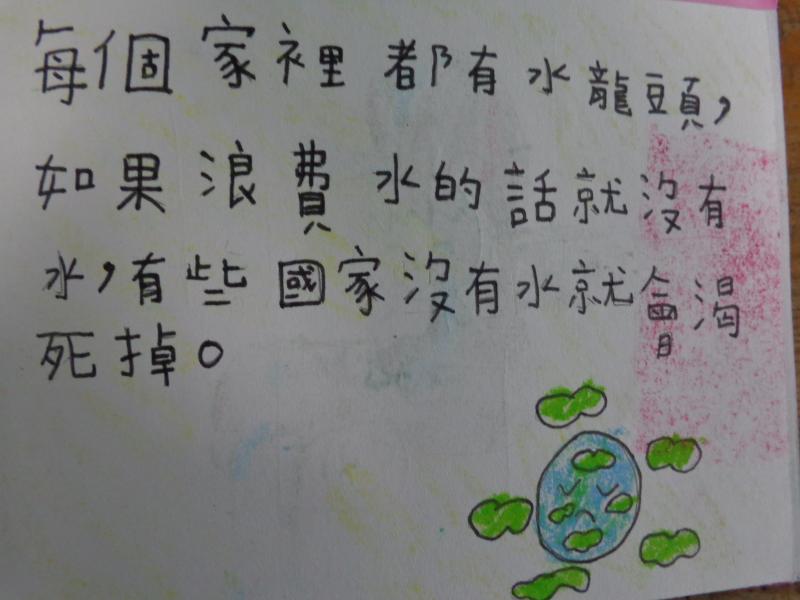 每個家裡都有水龍頭，
如果浪費水的話就沒有
水，有些國家沒有水就會渴
死掉。